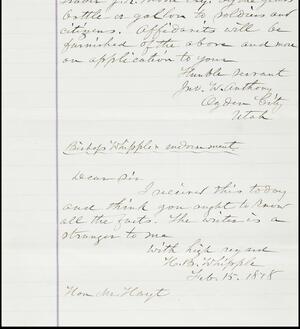 bottle or gallon to soldiers and
citizens. Affidavits will be
furnished of the above and more
on application to your
Humble servant
Jno. W. Anthony
Ogden City
Utah
Bishop Whipple's endorsement
Dear Sir
I received this today
and think you ought to know
all the facts. The writer is a
stranger to me
With high regard
H.B. Whipple
Feb. 15. 1878
Hon Mr Hayt